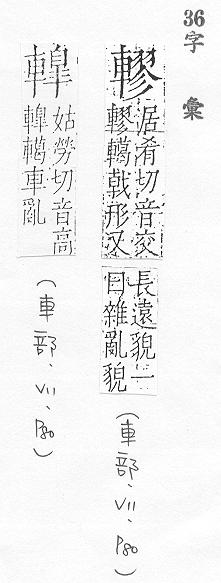 36字 彙
轇
居肴切音交
轇轕戟形又
長遠貌一
曰雜亂貌
(車部、VII、P80)
姑勞切音高
轕車亂
(車部、VII、P80)